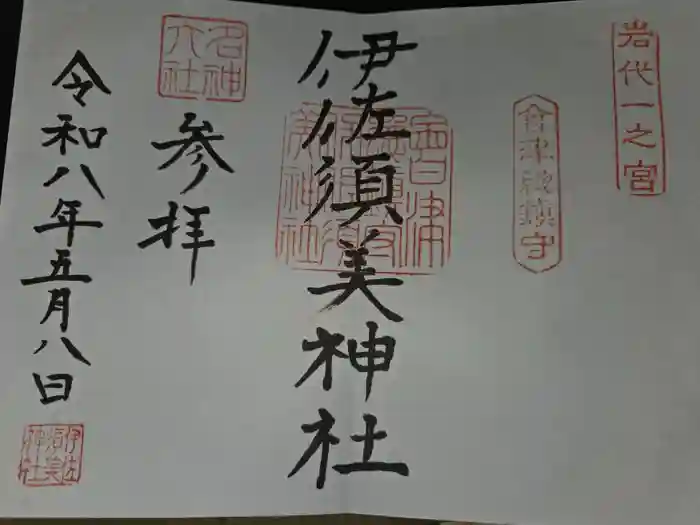 岩代一之宮
會津総鎮守
伊佐須美神社
名神大社
参拝
令和八年五月八日
伊佐須美神社